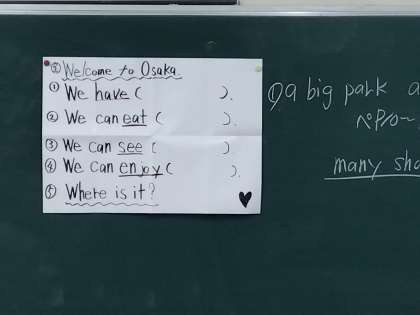 ⓪ Welcome to Osaka.
① We have (　　　).
② We can eat (　　　).
③ We can see (　　　)
④ We can enjoy (　　　).
⑤ Where is it?
① a big park a
many sho